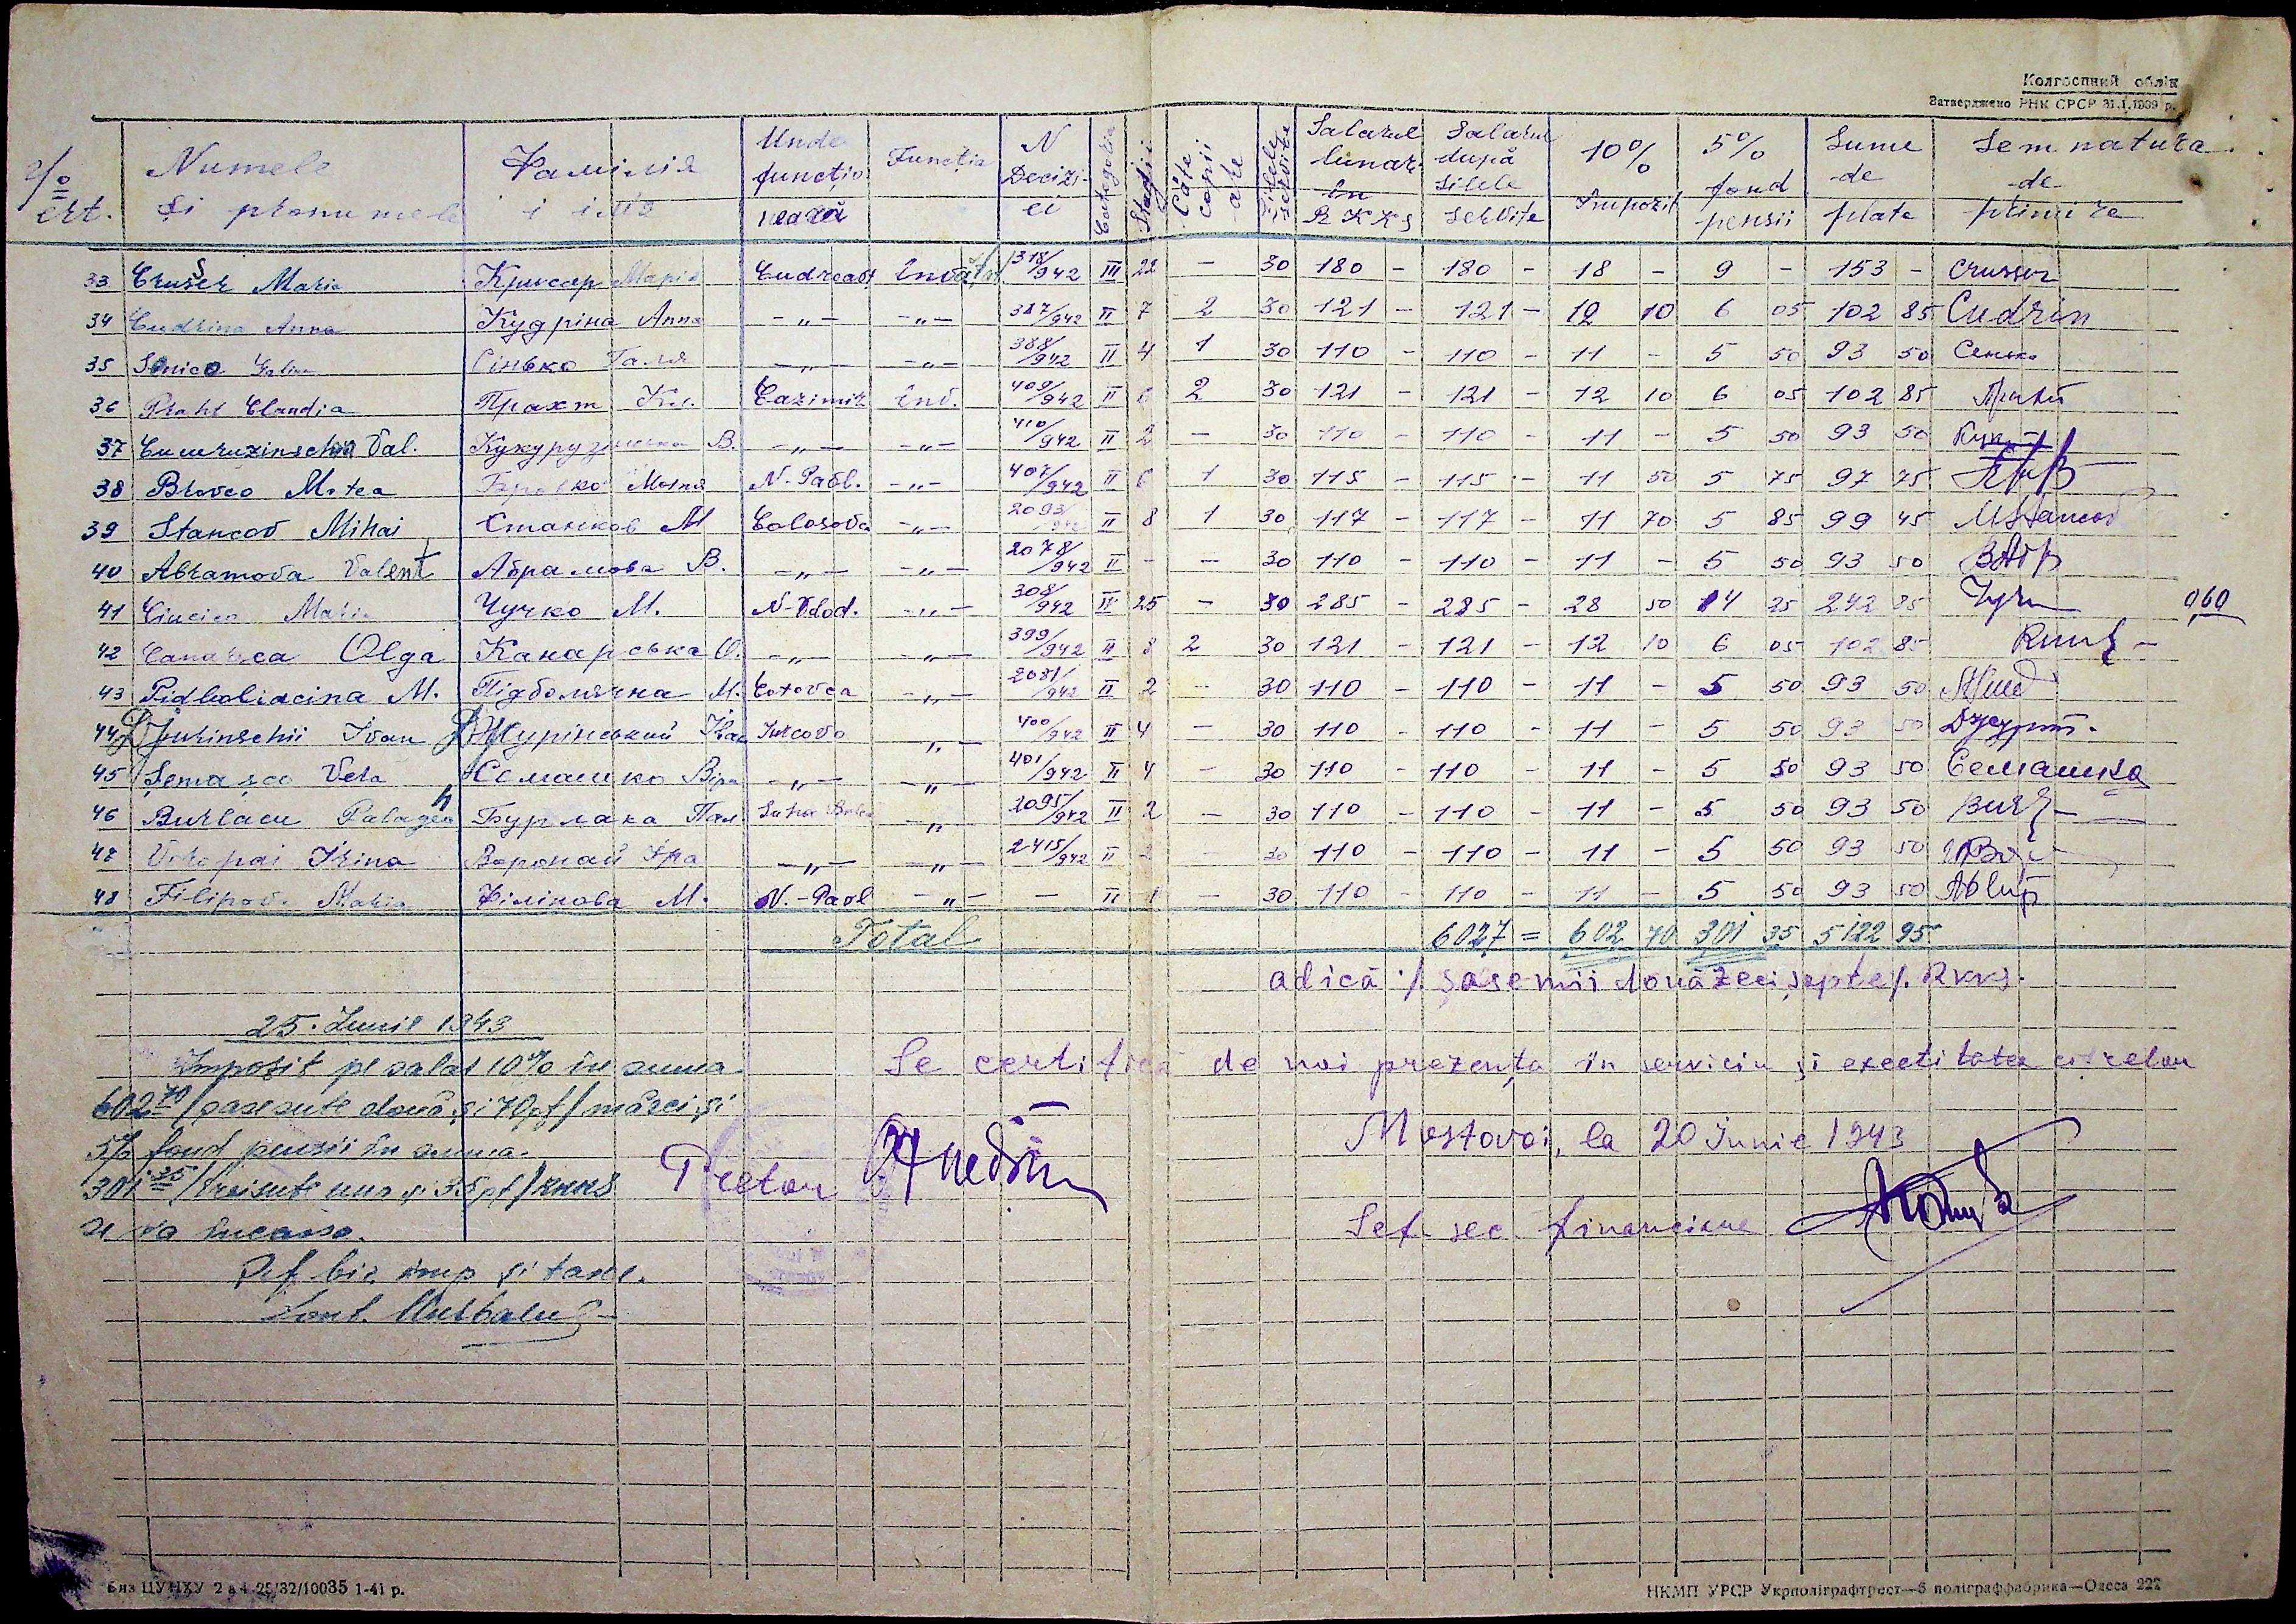 Колгоспний облік
Затверджено РНК СРСР 31.I.1939 р.
№ crt. Numele și pronumele Фамілія і імя Unde funcționează Funcția N Deciziei Categoria Stagii Câte copii are Zilele servite Salarul lunar în RKKS Salarul după zilele servite 10% Impozit 5% fond pensii Sume de plate Semnatura de primire
33 Crușer Maria Крисар Марія Cudreaoț Învăț 318/942 III 22 — 30 180 - 180 - 18 - 9 - 153 - Crusser
34 Cudrina Anna Кудріна Anna -„- -„- 387/942 II 7 2 30 121 - 121 - 12 10 6 05 102 85 Cudrin
35 Senico Galina Сінько Галя -„- -„- 388/942 II 4 1 30 110 - 110 - 11 - 5 50 93 50 Сенько
36 Praht Claudia Прахт Кл. Cazimir Înv. 409/942 II 6 2 30 121 - 121 - 12 10 6 05 102 85
37 Cucuruzinschi Val. Кукурузинська В. -„- -„- 410/942 II 2 — 30 110 - 110 - 11 - 5 50 93 50
38 Brovco Motea Бровко Мотя N-Pavl. -„- 407/942 II 6 1 30 115 - 115 - 11 50 5 75 97 75
39 Stancov Mihai Станков М Colosova -„- 2093/942 II 8 1 30 117 - 117 - 11 70 5 85 99 45 MStancov
40 Abramova Valent Абрамова В. -„- -„- 2078/942 II - — 30 110 - 110 - 11 - 5 50 93 50
41 Ciucico Maria Чучко М. N-Vlod. -„- 308/942 II 25 — 30 285 - 285 - 28 50 14 25 242 25 0,60
42 Canarsca Olga Канарська О. -„- -„- 399/942 II 8 2 30 121 - 121 - 12 10 6 05 102 85
43 Pidboliacina M. Підболячна М. Cotovca -„- 2081/942 II 2 — 30 110 - 110 - 11 - 5 50 93 50
44 Djurinschii Ivan Джурінський Іван Iurcovo -„- 400/942 II 4 — 30 110 - 110 - 11 - 5 50 93 50
45 Șemașco Vera Семашко Віра -„- -„- 401/942 II 4 — 30 110 - 110 - 11 - 5 50 93 50 Семашко
46 Burlacu Palagea Бурлака Пал. -„- 2095/942 II 2 — 30 110 - 110 - 11 - 5 50 93 50
47 Voropai Irina Воропай Іра -„- -„- 2415/942 II 2 — 30 110 - 110 - 11 - 5 50 93 50
48 Filipova Maria Філіпова М. N.-Pavl -„- — II 1 — 30 110 - 110 - 11 - 5 50 93 50
Total 6027 = 602 70 301 35 5122 95
adică ·/. șasemii douăzeci șapte /. Rkks.
25. Iunie 1943
Impozit pe salar 10% în suma
602 70 /șasesute două și 70 pf/ mărci și
5% fond pensii în suma
301 35 /treisute una și 35 pf/ RKKS
se va încassa.
Șef. bir. imp și taxe.
Se certifică de noi prezența în serviciu și exectitatea cifrelor
Mostovoi, la 20 Iunie 1943
Pretor
Șef. sec. financiare
Биз ЦУНХУ 2 в 4-25/32/10035 1-41 р.
НКМП УРСР Укрполіграфтрест—6 поліграффабрика—Одеса 222